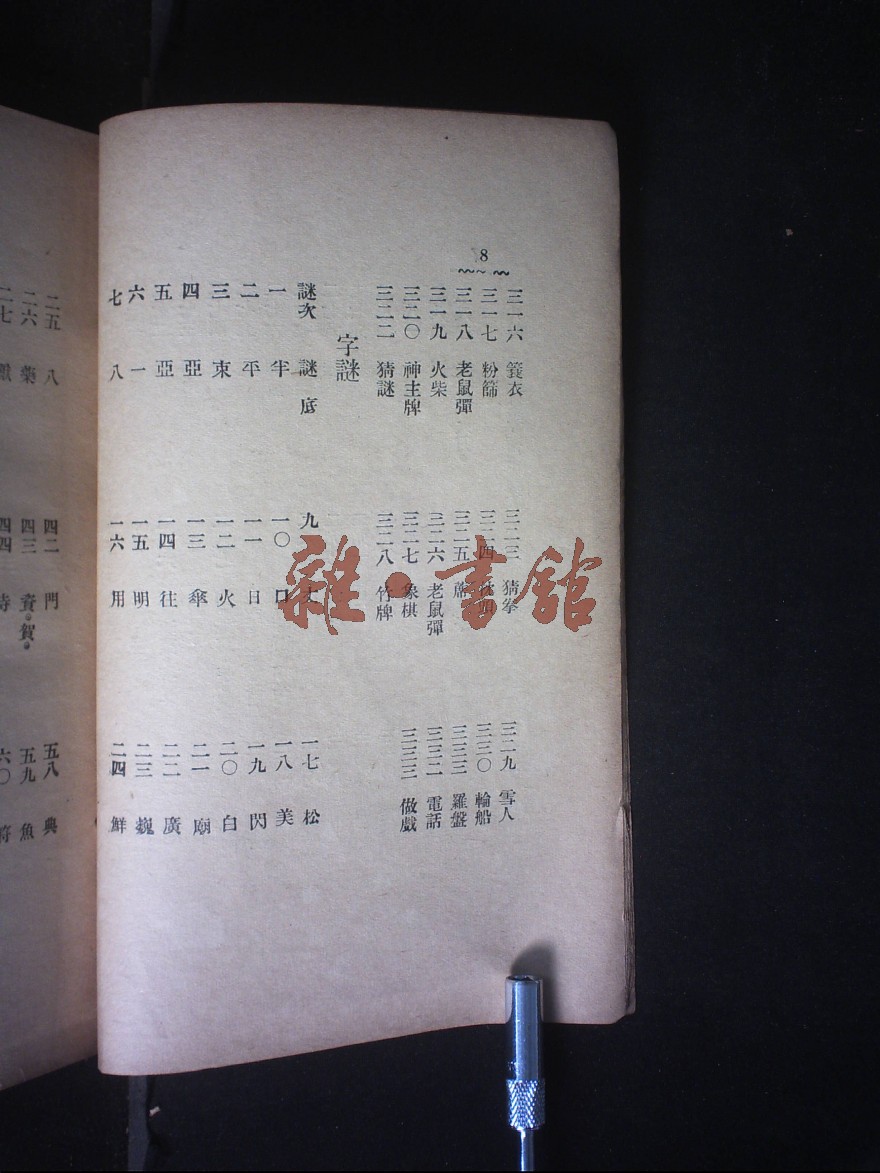 8
三一六 簑衣
三一七 粉篩
三一八 老鼠彈
三一九 火柴
三二〇 神主牌
三二二 猜謎
三二三 猜拳
三二四
三二五
三二六 老鼠彈
三二七 象棋
三二八 竹牌
三二九 雪人
三三〇 輪船
三三三 羅盤
三三二 電話
三三三 做戲
字謎
謎次 謎底
一 半
二 平
三 束
四 亞
五 亞
六 一
七 八
九
一〇 口
一一 日
一二 火
一三 傘
一四 往
一五 明
一六 用
一七 松
一八 美
一九 閃
二〇 白
二一 廟
二二 廣
二三 巍
二四 鮮
二五 八
二六 藥
二七
四二 門
四三 賀
四四
五八 典
五九 魚
六〇
雜·書館